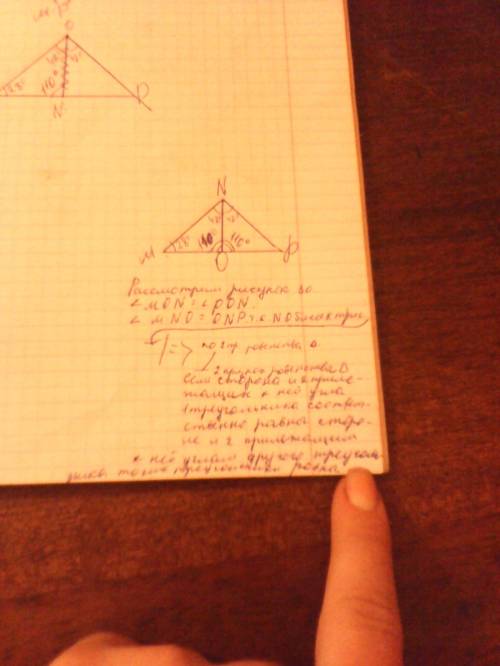 O
110°
P
N
M
28°
110°
110°
P
O
Рассмотрим рисунок
∠MON = ∠PON.
∠MNO = ONP т.к NO биссектрис
=> по 2 пр. равенства Δ.
2 признак равенства Δ
Если сторона и 2 приле-
жащих к ней угла
1 треугольника соответ-
ственно равны сторо-
не и 2 прилежащим
к ней углам другого треуголь
то треугольники равны